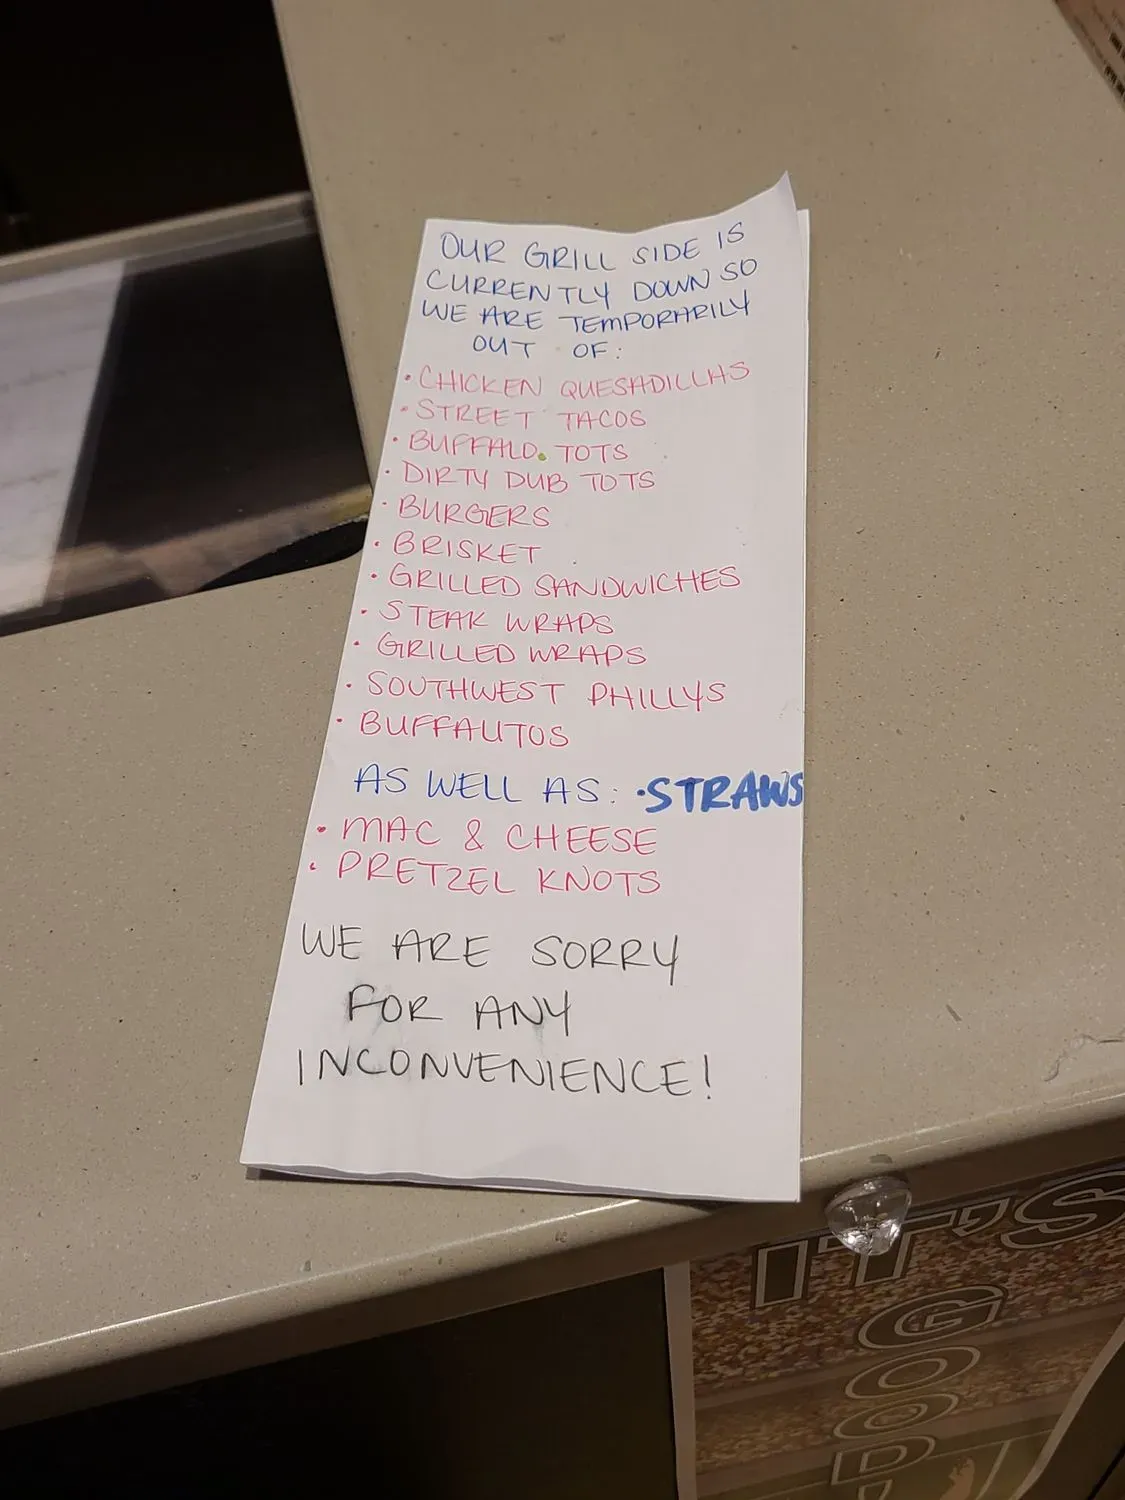 OUR GRILL SIDE IS
CURRENTLY DOWN SO
WE ARE TEMPORARILY
OUT OF:
• CHICKEN QUESADILLAS
• STREET TACOS
• BUFFALO TOTS
• DIRTY DUB TOTS
• BURGERS
• BRISKET
• GRILLED SANDWICHES
• STEAK WRAPS
• GRILLED WRAPS
• SOUTHWEST PHILLYS
• BUFFALITOS
AS WELL AS: • STRAWS
• MAC & CHEESE
• PRETZEL KNOTS
WE ARE SORRY
FOR ANY
INCONVENIENCE!
IT'S
GOOD